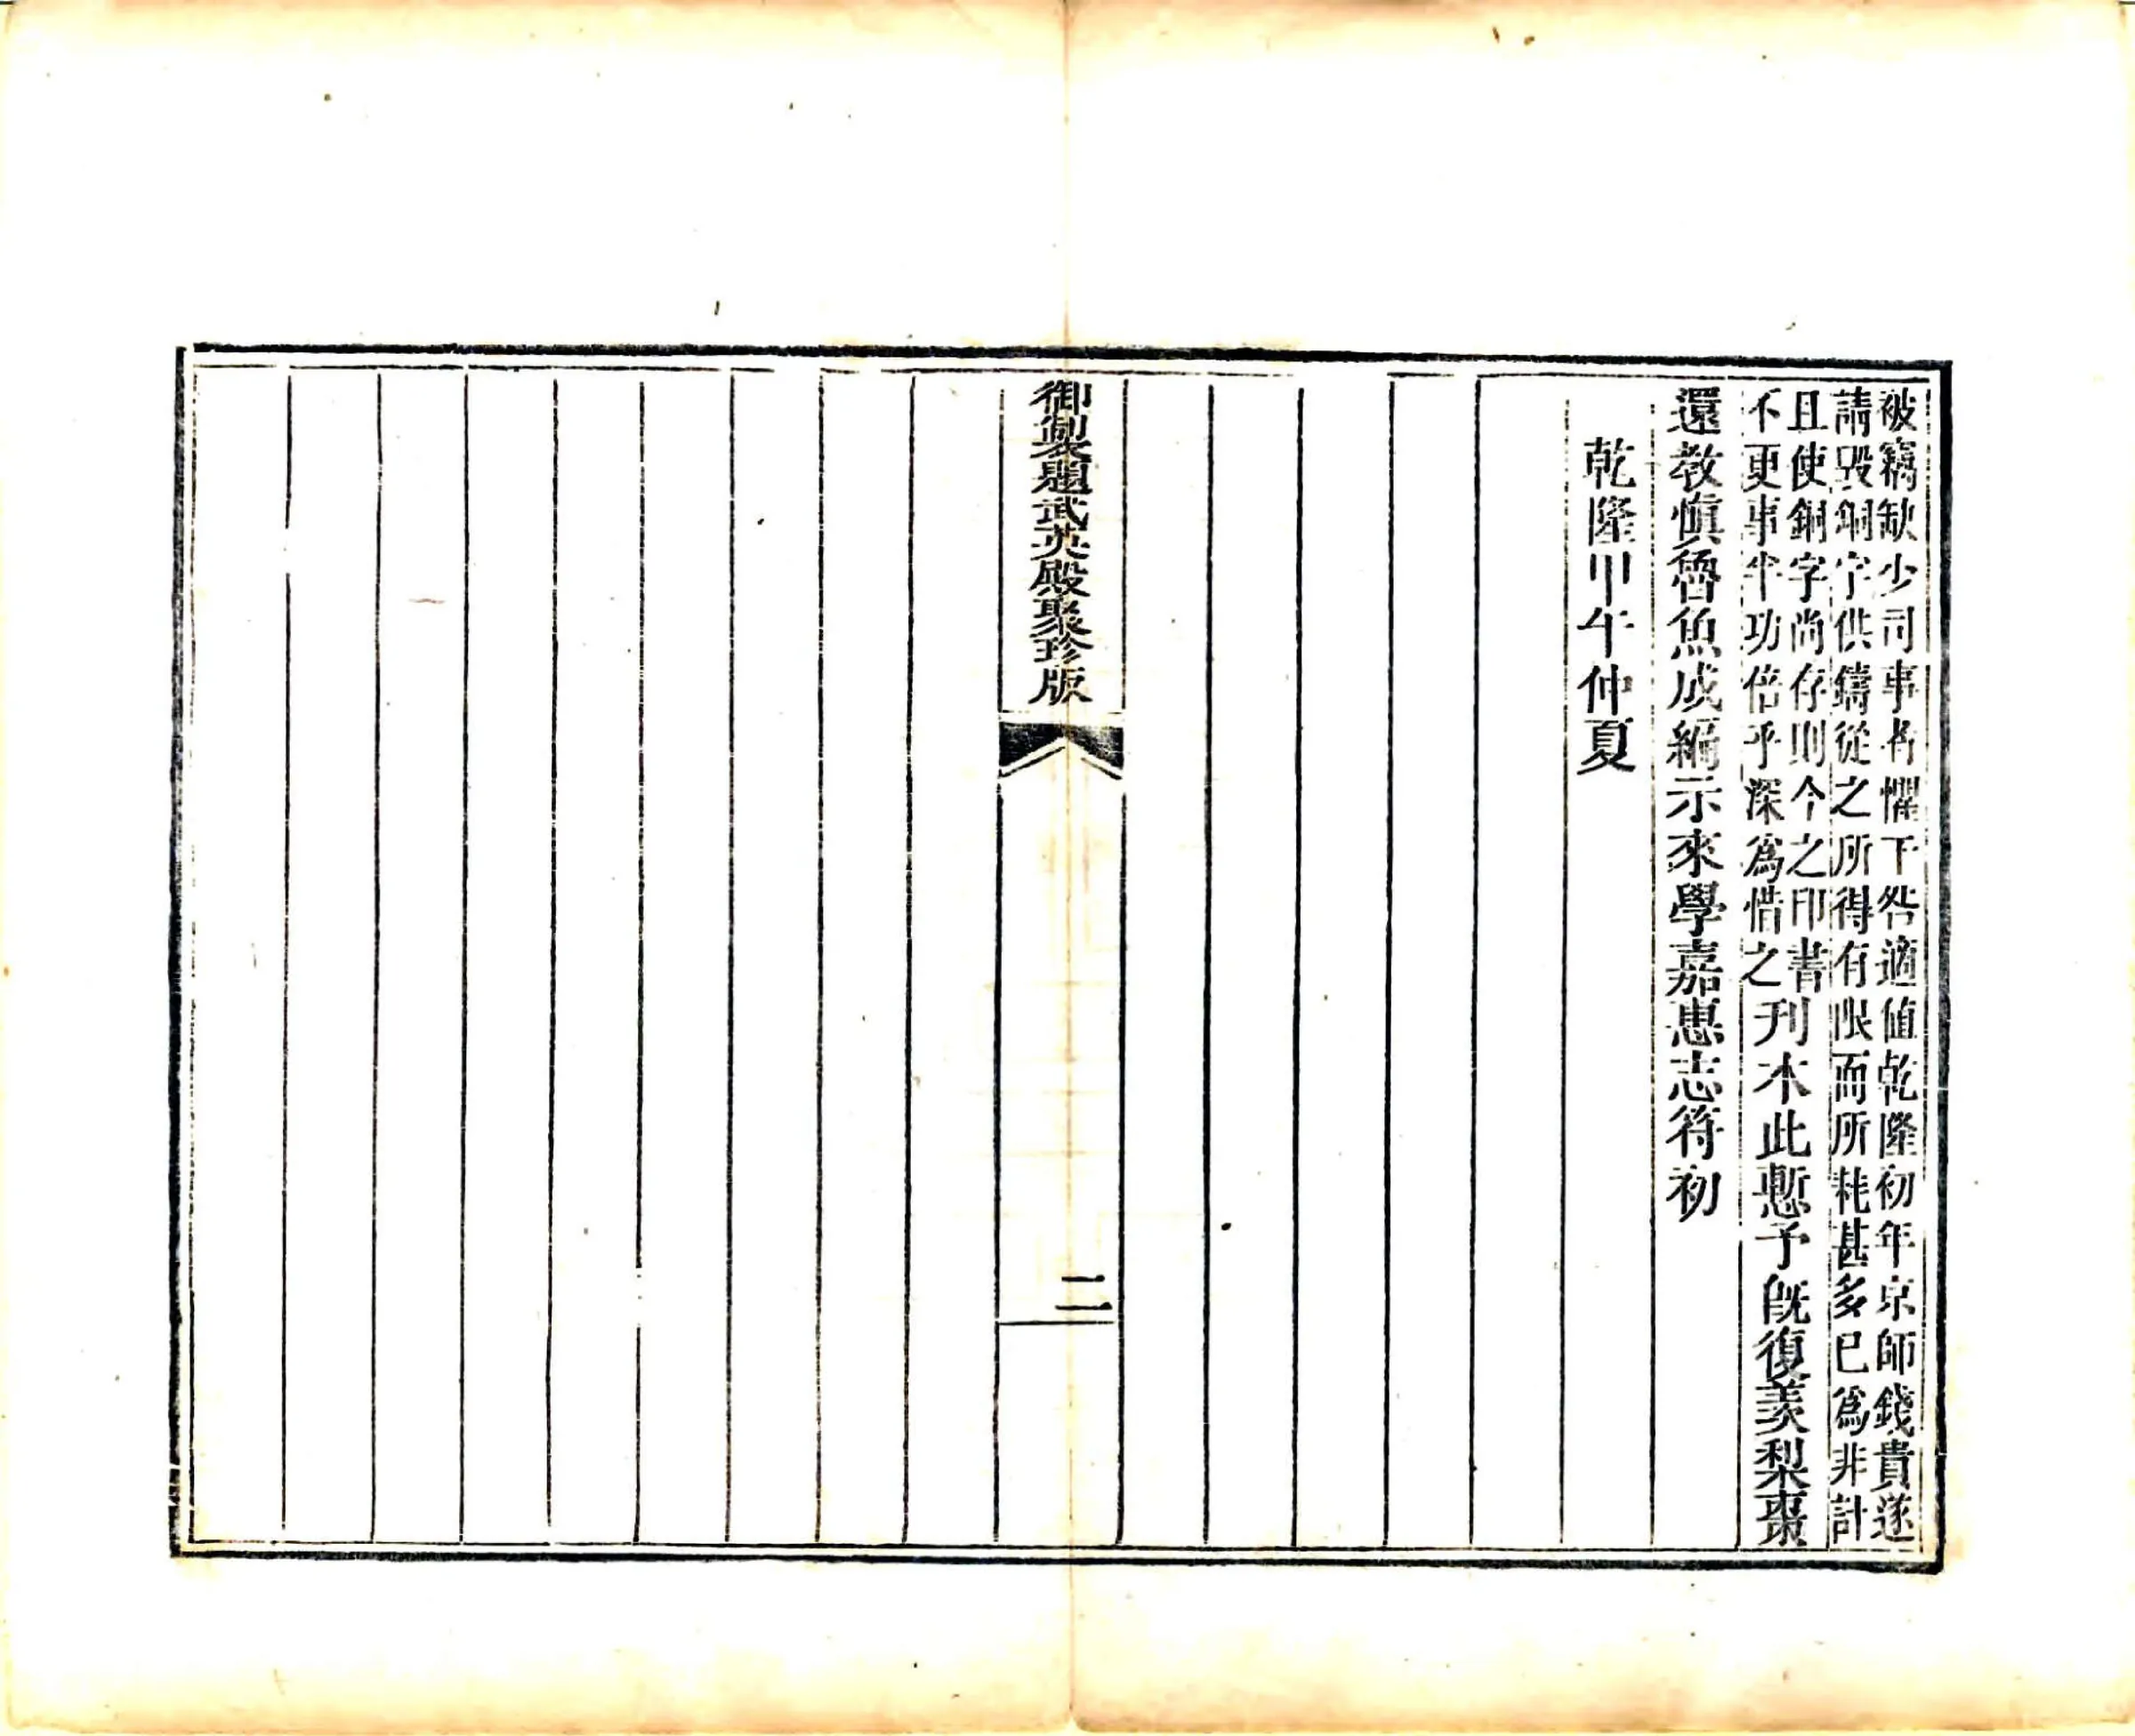 被竊缺少司事者懼干咎適值乾隆初年京師錢貴遂
請毀銅字供鑄從之所得有限而所耗甚多已爲非計
且使銅字尚存則今之印書
不更事半功倍乎深爲惜之
刋木此慙予旣復羨梨棗
還教愼魯魚成編示來學嘉惠志符初
乾隆甲午仲夏
御製題武英殿聚珍版
二